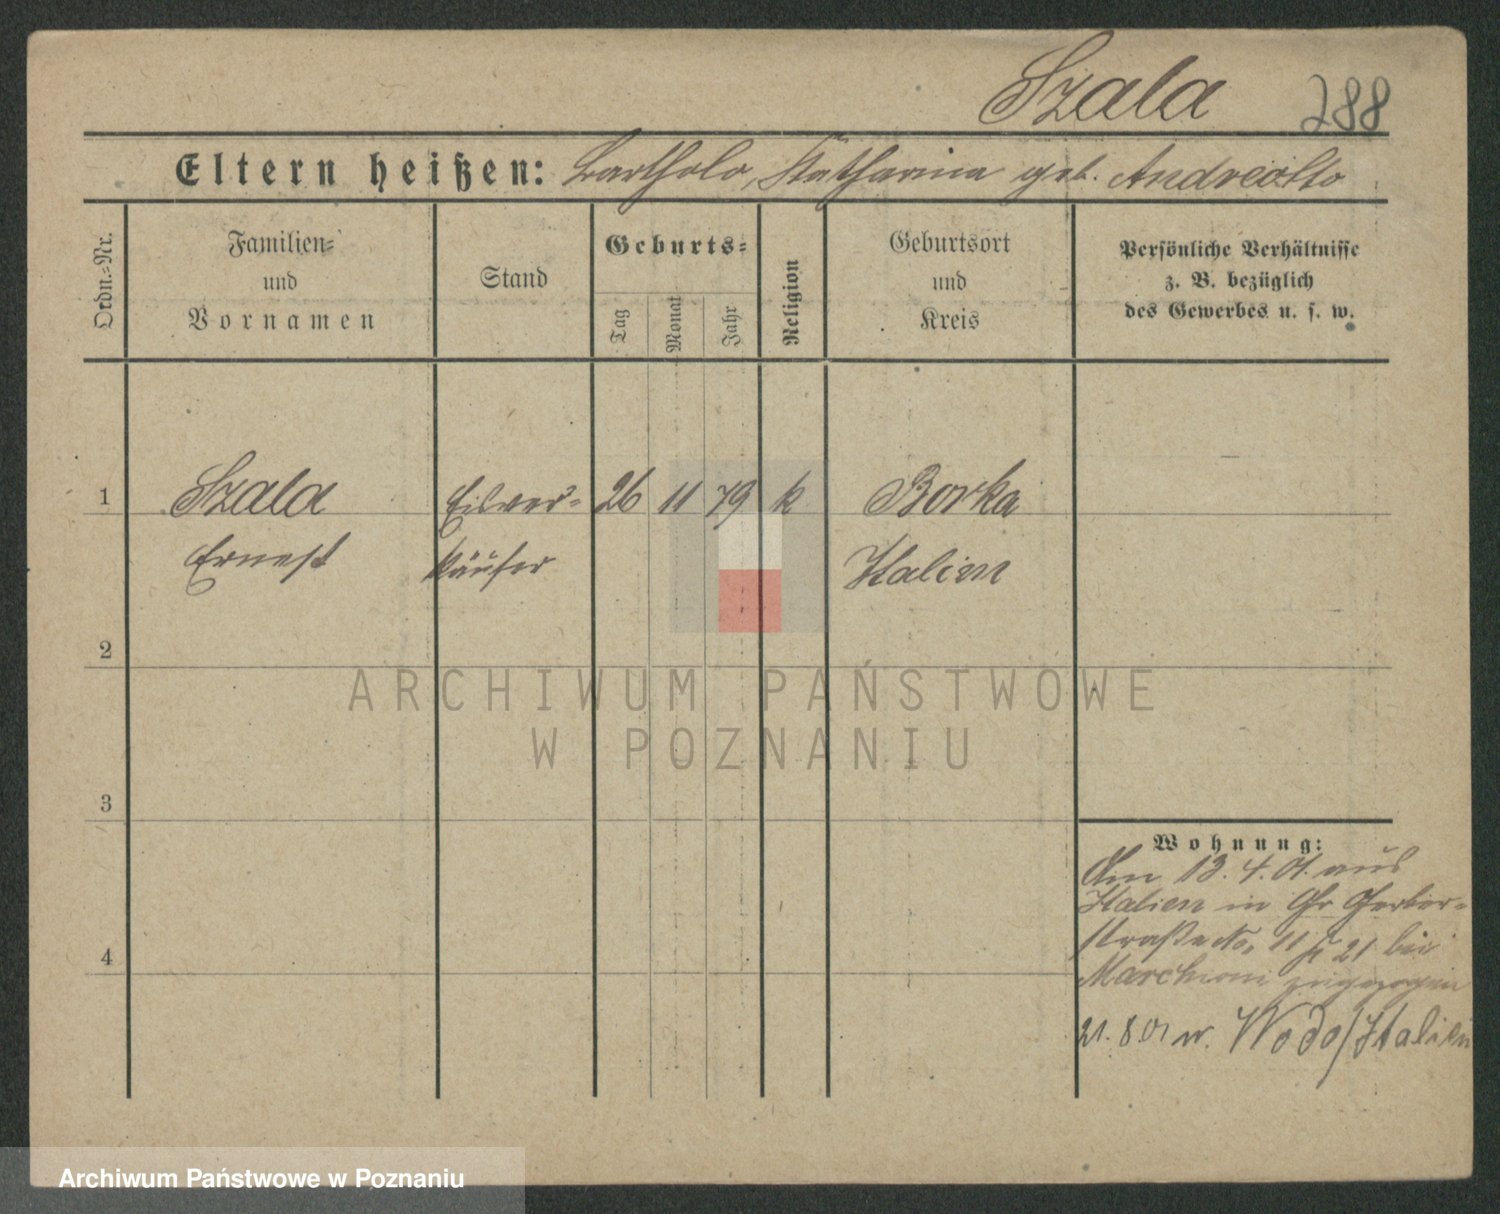 Szala 288
Eltern heißen: Bartholo, Katharina geb. Andreotto
Ordn.-Nr.
Familien-
und
Vornamen
Stand
Geburts-
Tag
Monat
Jahr
Religion
Geburtsort
und
Kreis
Persönliche Verhältnisse
z. B. bezüglich
des Gewerbes u. s. w.
1 Szala Eisver- 26 11 79 k Borka
Ernest käufer Italien
2
3
4
Wohnung:
Am 13. 4. 01. aus
Italien in Gr. Gerber-
straße No. 11 21 bei
Marchioni zugezogen
21. 8 01 n. Wodo/Italien
ARCHIWUM PAŃSTWOWE
W POZNANIU
Archiwum Państwowe w Poznaniu